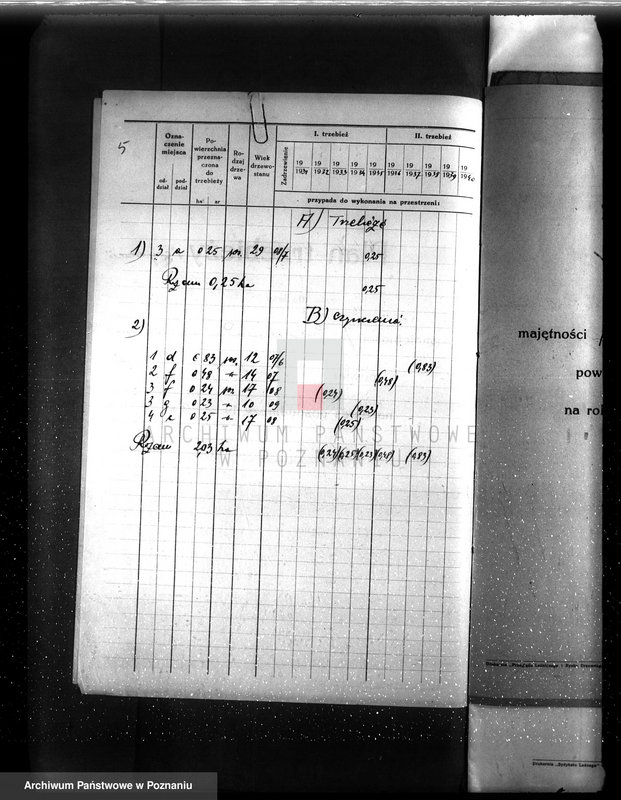 5
Ozna-
czenie
miejsca
od-
dział
pod-
dział
Po-
wierzchnia
przezna-
czona
do
trzebieży
ha
ar
Ro-
dzaj
drze-
wa
Wiek
drzewo-
stanu
Zadrzewienie
I. trzebież
II. trzebież
19 19 19 19 19 19 19 19 19 19
1931 1932 1933 1934 1935 1936 1937 1938 1939 1940
przypada do wykonania na przestrzeni:
A) Trzebież
1) 3 a 0 25 29 08/7 0,25
Razem 0,25 ha 0,25
B)
2)
1 d 0 83 12 07/6 (0,83)
2 f 0 48 " 14 07 (0,48)
3 f 0 24 17 08 (0,24)
3 g 0 23 " 10 09 (0,23)
4 a 0 25 " 17 08 (0,25)
Razem 2,03 ha (0,24) (0,25) (0,23) (0,48) (0,83)
ARCHIWUM PAŃSTWOWE
W POZNANIU
majętności
pow
na rok
Archiwum Państwowe w Poznaniu